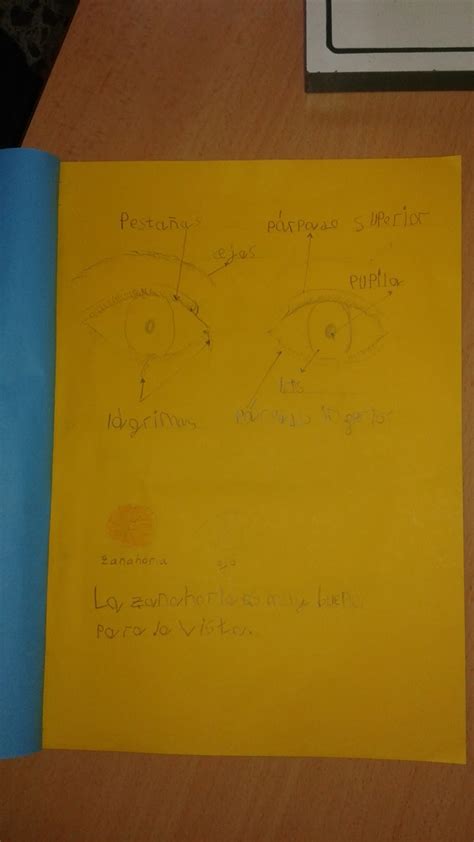 Pestañas
cejas
párpado superior
PUPila
Iris
lágrimas
párpado inferior
zanahoria
ojo
La zanahoria es muy buena
para la vista.